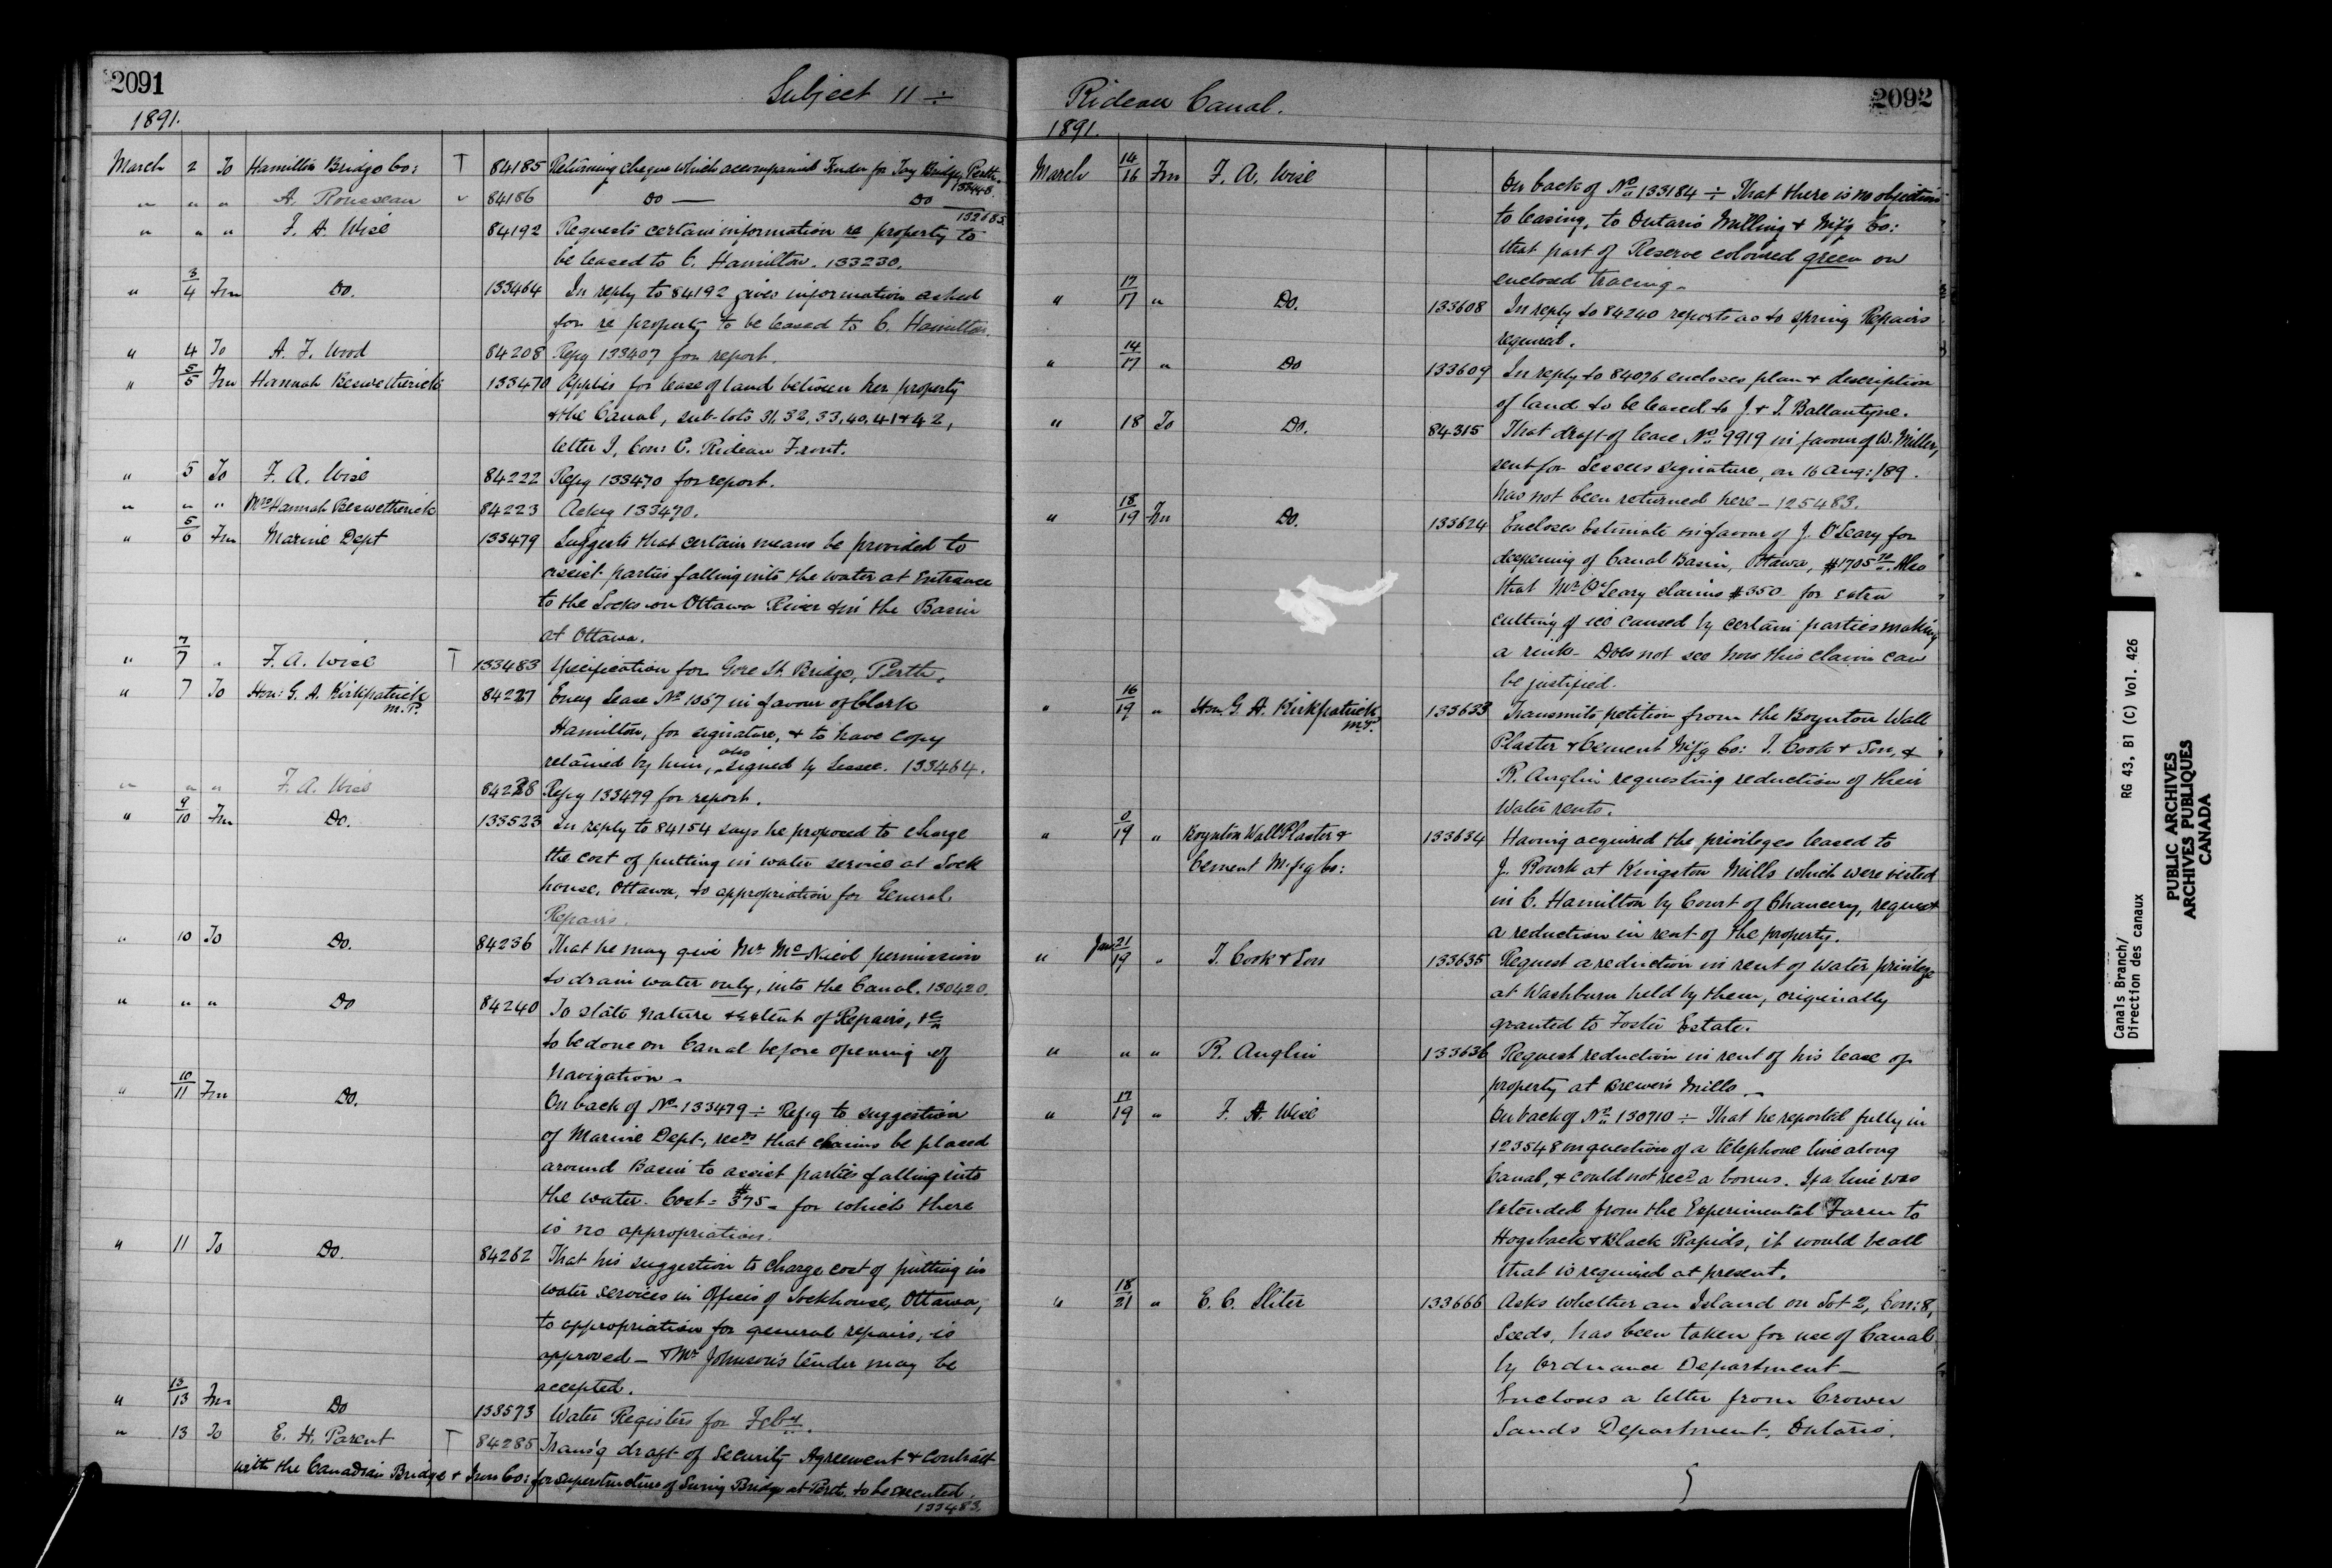 2091
Subject 11 ÷
1891.
March 2 To Hamilton Bridge Co: T 84185 Returning cheque which accompanied Tender for Tay Bridge, Perth.
" " " A. Rousseau " 84186 Do — Do —
132685
" " " F. A. Wise 84192 Requests certain information re property to
be leased to C. Hamilton. 133230.
" 3/4 Fm Do. 133464 In reply to 84192 gives information asked
for re property to be leased to C. Hamilton.
" 4 To A. F. Wood 84208 Refg 133407 for report.
" 5/5 Fm Hannah Beswetherick 133470 Applies for lease of land between her property
& the Canal, sub-lots 31, 32, 33, 40, 41 & 42,
letter I, Con: C. Rideau Front.
" 5 To F. A. Wise 84222 Refg 133470 for report.
" " " Mrs Hannah Beswetherick 84223 Ackg 133470.
" 5/6 Fm Marine Dept 133479 Suggests that certain means be provided to
assist parties falling into the water at Entrance
to the Locks on Ottawa River & in the Basin
at Ottawa.
" 7/7 " F. A. Wise T 133483 Specification for Gore St. Bridge, Perth.
" 7 To Hon: G. A. Kirkpatrick 84227 Encg Lease No 1067 in favour of Clark
M.P.
Hamilton, for signature, & to have copy
retained by him, also signed by Lessee. 133464.
" " " F. A. Wise 84228 Refg 133479 for report.
" 9/10 Fm Do. 133523 In reply to 84154 says he proposed to charge
the cost of putting in water service at Lock
house, Ottawa, to appropriation for General
Repairs.
" 10 To Do. 84236 That he may give Mr McNicol permission
to drain water only, into the Canal. 130420.
" " " Do 84240 To state nature & extent of Repairs, &c
to be done on Canal before opening of
Navigation –
" 10/11 Fm Do. On back of No 133479 ÷ Refg to suggestion
of Marine Dept, recds that chains be placed
around Basin to assist parties falling into
the water. Cost = $375 – for which there
is no appropriation.
" 11 To Do. 84262 That his suggestion to charge cost of putting in
water services in Offices of Lockhouse, Ottawa,
to appropriation for general repairs, is
approved – & Mr Johnson's tender may be
accepted.
" 13/13 Fm Do 133573 Water Registers for Feby.
" 13 To E. H. Parent T 84285 Trans'g draft of Security Agreement & Contract
with the Canadian Bridge & Iron Co: for superstructure of Swing Bridge at Perth, to be executed.
133483.
Rideau Canal.
2092
1891.
March 14/16 Fm F. A. Wise On back of No 133184 ÷ That there is no objection
to leasing, to Ontario Milling & Mfg Co:
that part of Reserve coloured green on
enclosed tracing –
" 17/17 " Do. 133608 In reply to 84240 reports as to spring Repairs
required.
" 14/17 " Do 133609 In reply to 84096 encloses plan & description
of land to be leased to J. & T. Ballantyne.
" 18 To Do. 84315 That draft of lease No 9919 in favour of W. Miller,
sent for Lessees signature, on 16 Aug: /89.
has not been returned here – 125483.
" 18/19 Fm Do. 133624 Encloses Estimate in favour of J. O'Leary for
deepening of Canal Basin, Ottawa, $1705 Also
that Mr O'Leary claims $350 for extra
cutting of ice caused by certain parties making
a rink – Does not see how this claim can
be justified.
" 16/19 " Hon. G. A. Kirkpatrick 133633 Transmits petition from the Boynton Wall
M.P.
Plaster & Cement Mfg Co: T. Cook & Son, &
R. Anglin requesting reduction of their
Water rents.
" 0/19 " Boynton Wall Plaster & 133634 Having acquired the privileges leased to
Cement Mfg Co: J. Rourk at Kingston Mills which were vested
in C. Hamilton by Court of Chancery, request
a reduction in rent of the property.
" Jan: 21/19 " T. Cook & Son 133635 Request a reduction in rent of water privilege
at Washburn held by them, originally
granted to Foster Estate.
" " " R. Anglin 133636 Request reduction in rent of his lease of
property at Brewer's Mills –
" 17/19 " F. A. Wise On back of No 130710 ÷ That he reported fully in
123548 on question of a telephone line along
Canal, & could not recd a bonus. If a line was
extended from the Experimental Farm to
Hogsback & Black Rapids, it would be all
that is required at present.
" 18/21 " E. C. Sliter 133666 Asks whether an Island on Lot 2, Con: 8,
Leeds, has been taken for use of Canal
by Ordnance Department –
Encloses a letter from Crown
Lands Department, Ontario.
Canals Branch/
Direction des canaux
RG 43, B1 (C) Vol. 426
PUBLIC ARCHIVES
ARCHIVES PUBLIQUES
CANADA